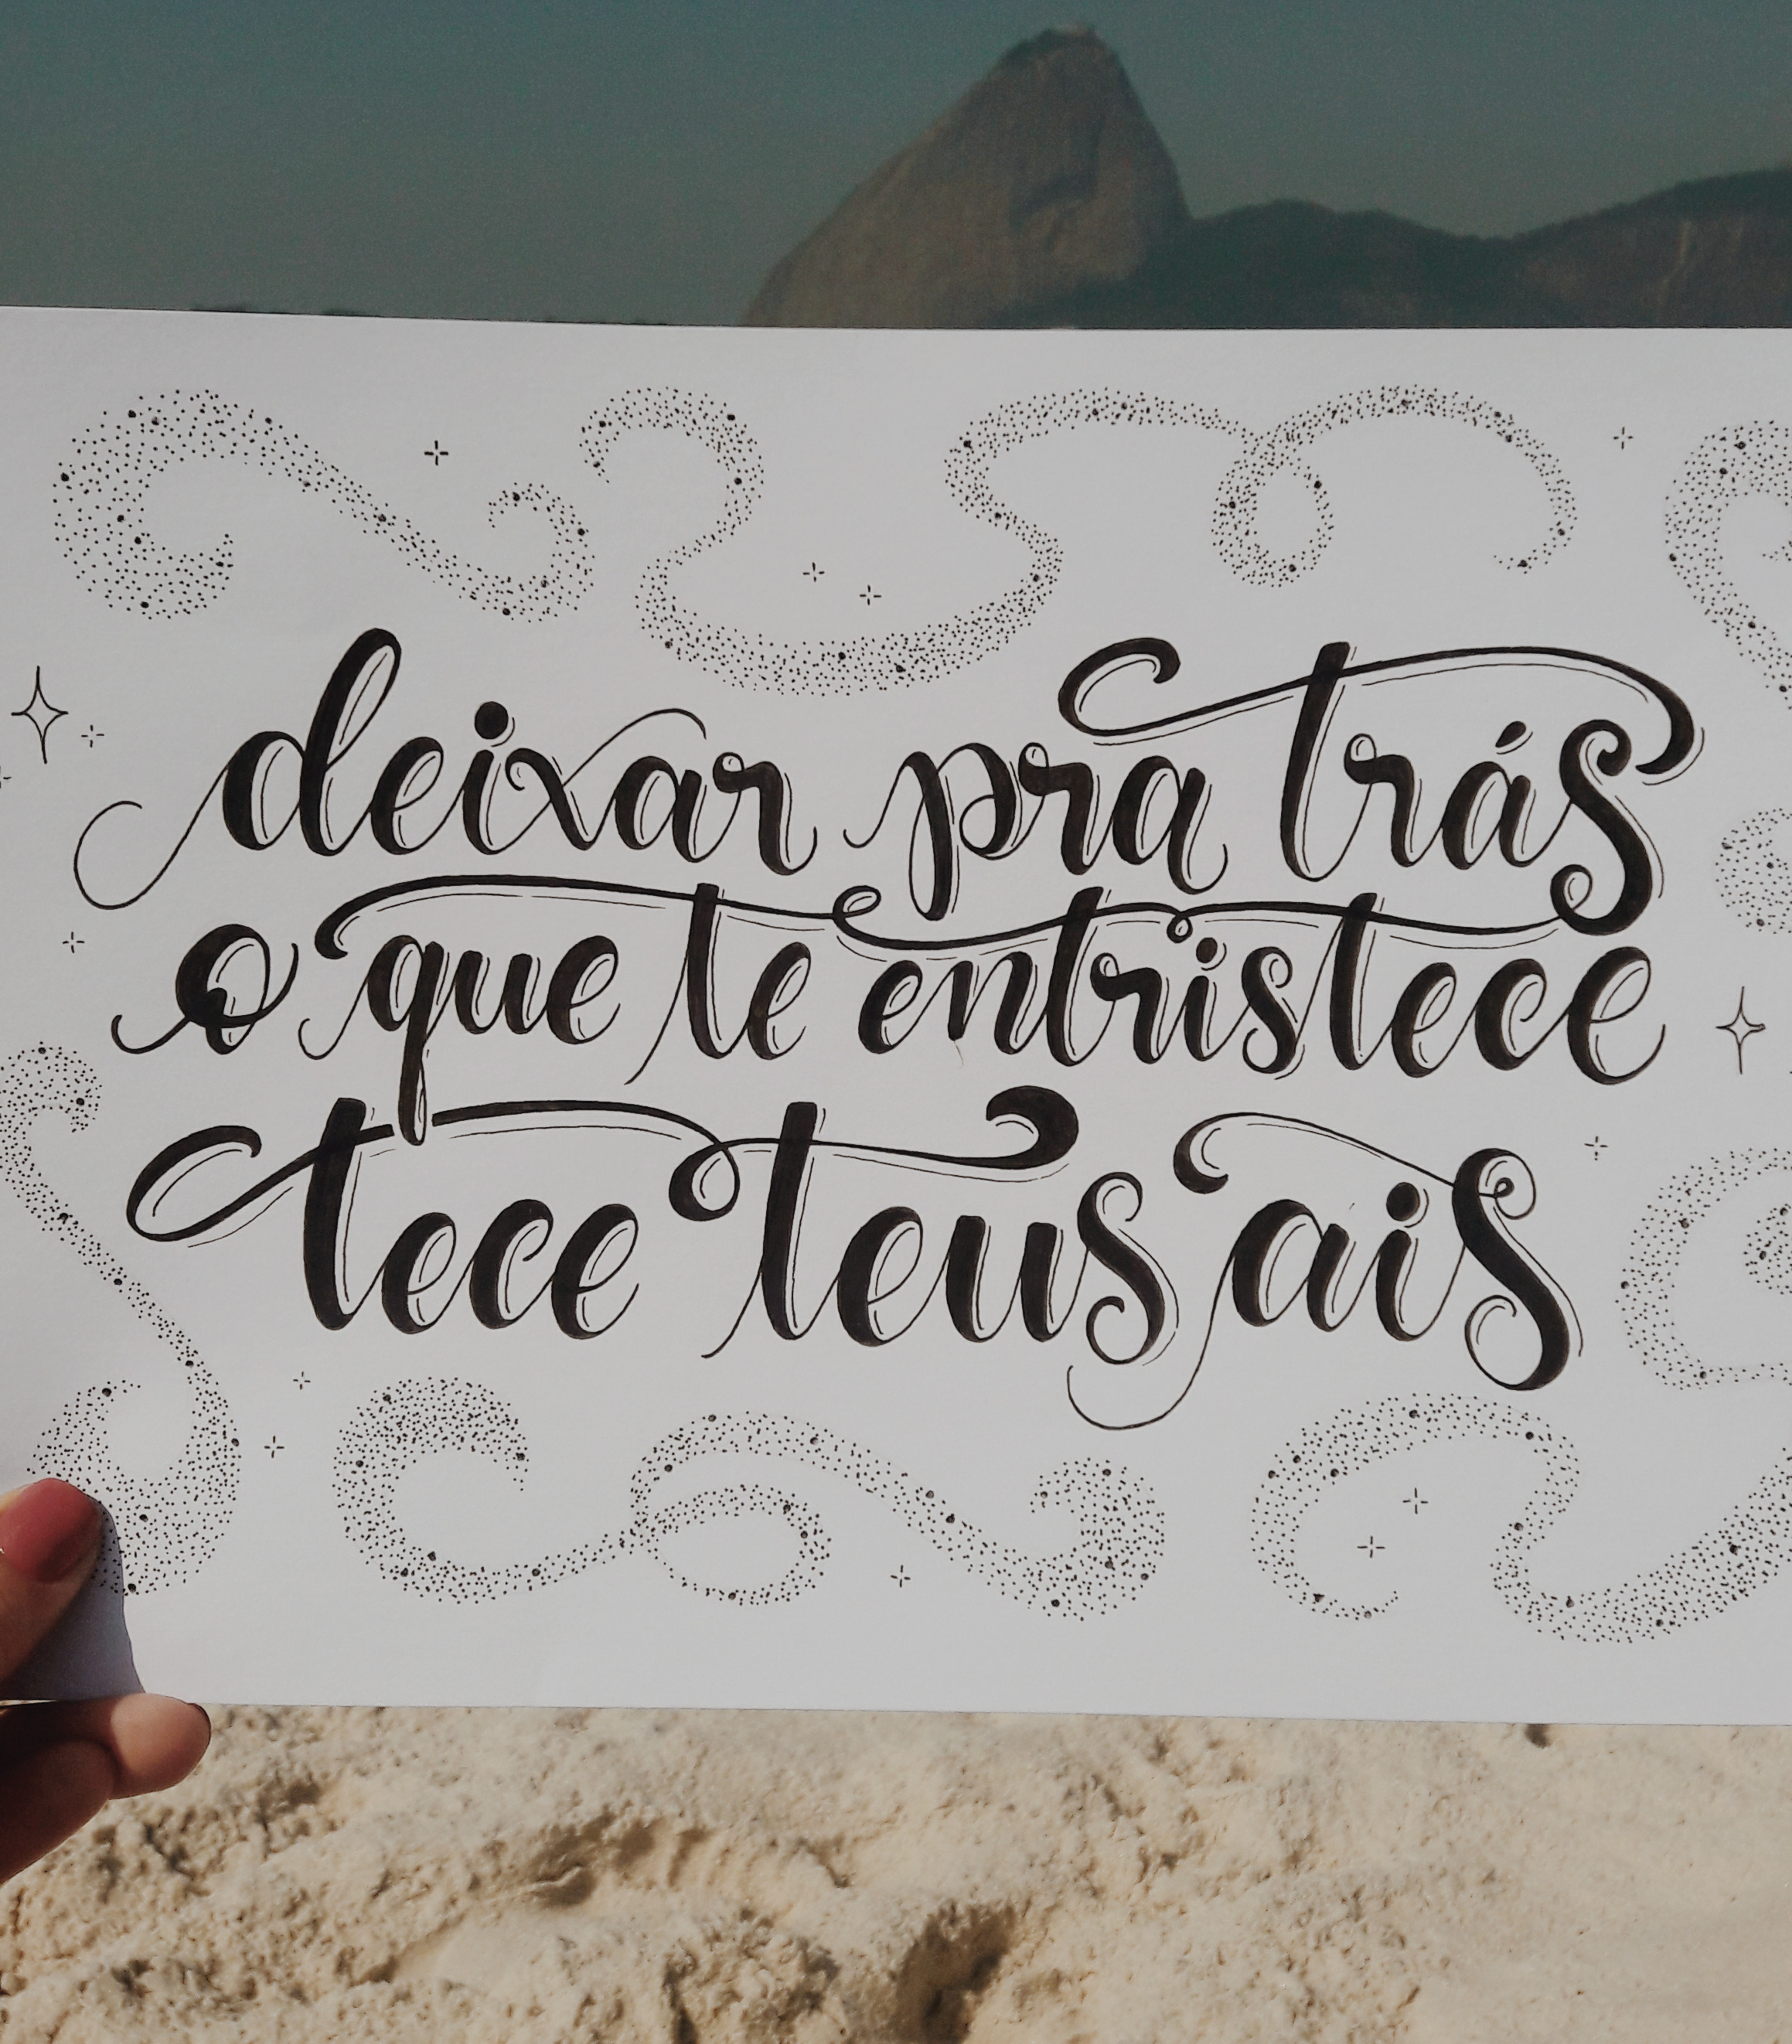 deixar pra trás
o que te entristece
tece teus ais